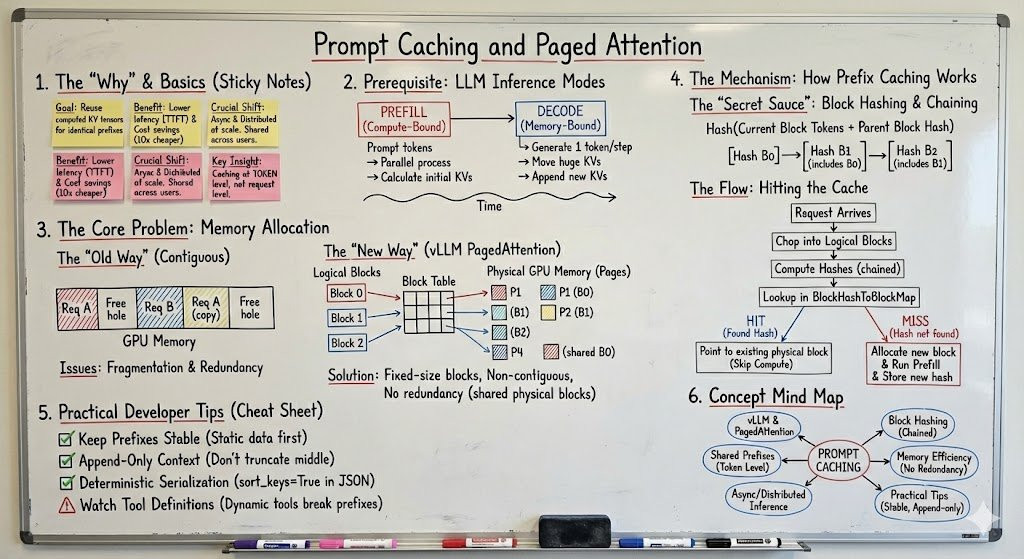 Prompt Caching and Paged Attention
1. The "Why" & Basics (Sticky Notes)
Goal: Reuse
computed KV tensors
for identical prefixes
Benefit: Lower
latency (TTFT) &
Cost savings
(10x cheaper)
Crucial Shift:
Async & Distributed
at scale. Shared
across users.
Benefit: Lower
latency (TTFT)
& Cost savings
(10x cheaper)
Crucial Shift:
at scale.
across users.
Key Insight:
Caching at TOKEN
level, not request
level.
2. Prerequisite: LLM Inference Modes
PREFILL
(Compute-Bound)
DECODE
(Memory-Bound)
Prompt tokens
→ Parallel process
→ Calculate initial KVs
Generate 1 token/step
→ Move huge KVs
→ Append new KVs
Time
3. The Core Problem: Memory Allocation
The "Old Way" (Contiguous)
Req A
Free
hole
Req B
Req A
(copy)
Free
hole
GPU Memory
Issues: Fragmentation & Redundancy
The "New Way" (vLLM PagedAttention)
Logical Blocks
Block 0
Block 1
Block 2
Block Table
Physical GPU Memory (Pages)
P1
P1 (B0)
(B1)
P2 (B1)
(B2)
P4
(shared B0)
Solution: Fixed-size blocks, Non-contiguous,
No redundancy (shared physical blocks)
4. The Mechanism: How Prefix Caching Works
The "Secret Sauce": Block Hashing & Chaining
Hash(Current Block Tokens + Parent Block Hash)
[Hash B0] → [Hash B1 (includes B0)] → [Hash B2 (includes B1)]
The Flow: Hitting the Cache
Request Arrives
Chop into Logical Blocks
Compute Hashes (chained)
Lookup in BlockHashToBlockMap
HIT
(Found Hash)
MISS
(Hash net found)
Point to existing physical block
(Skip Compute)
Allocate new block
& Run Prefill
& Store new hash
5. Practical Developer Tips (Cheat Sheet)
Keep Prefixes Stable (Static data first)
Append-Only Context (Don't truncate middle)
Deterministic Serialization (sort_keys=True in JSON)
Watch Tool Definitions (Dynamic tools break prefixes)
6. Concept Mind Map
vLLM &
PagedAttention
Block Hashing
(Chained)
Shared Prefixes
(Token Level)
PROMPT
CACHING
Memory Efficiency
(No Redundancy)
Async/Distributed
Inference
Practical Tips
(Stable, Append-only)